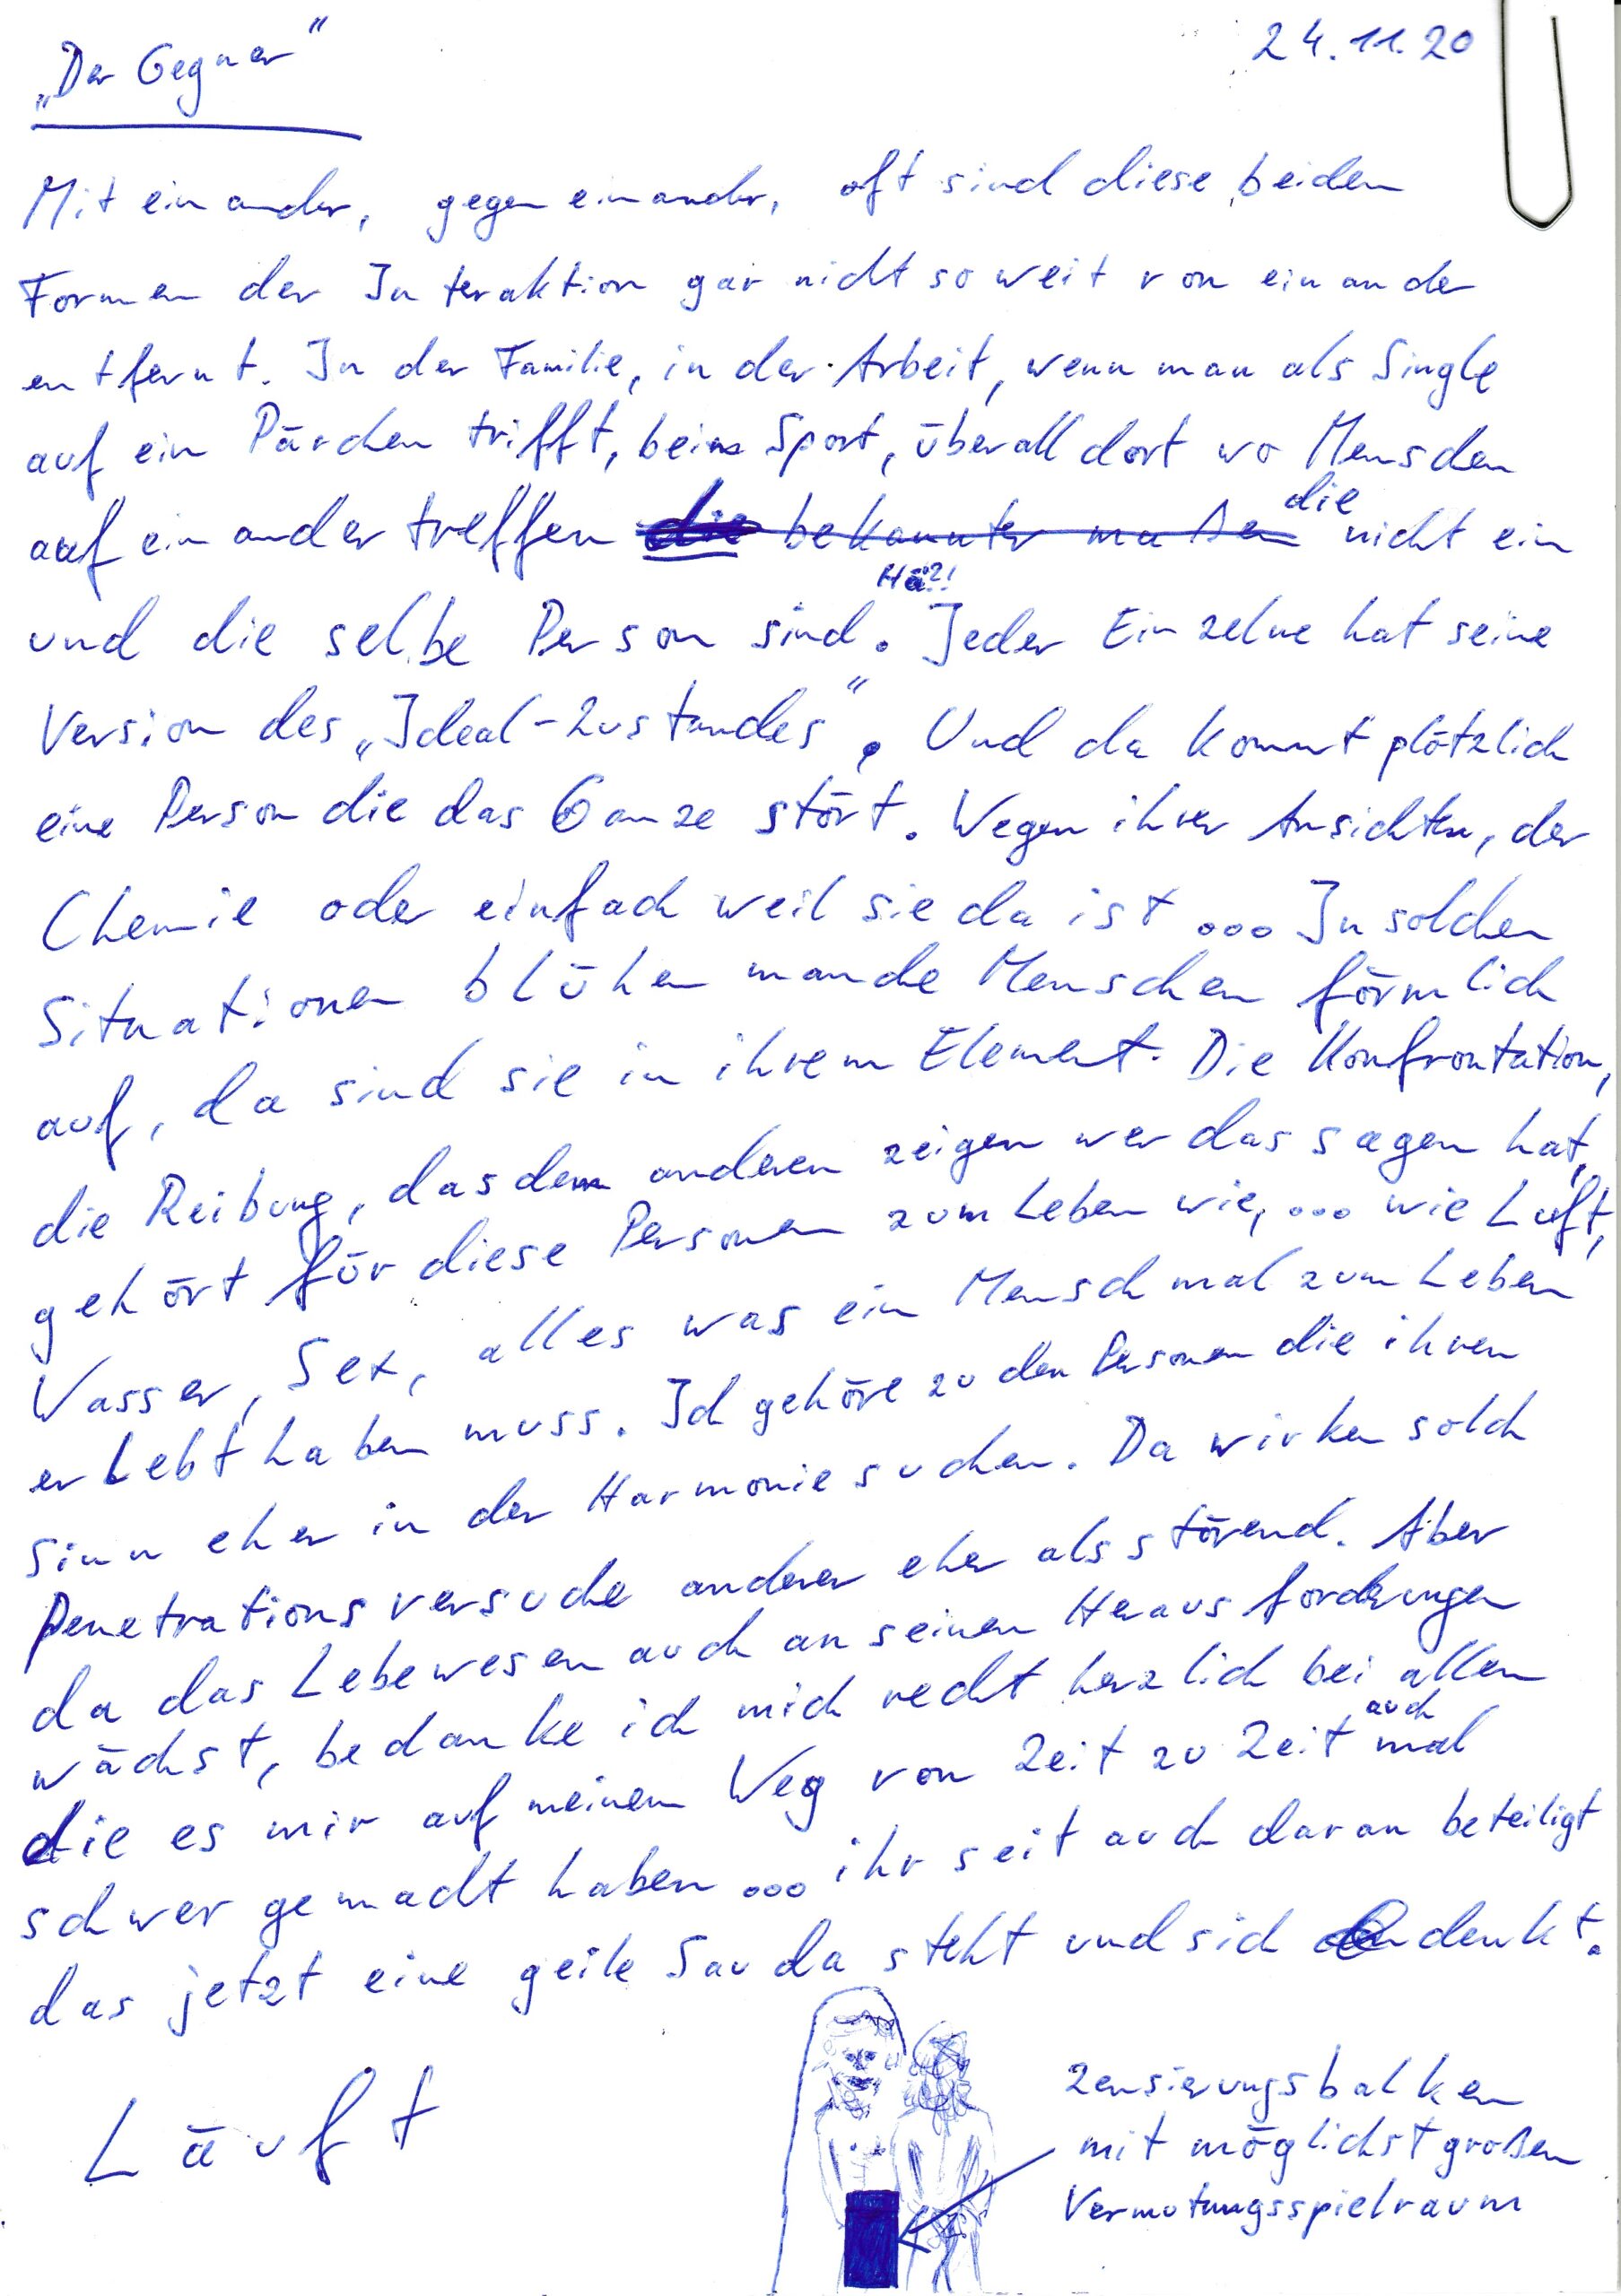 „Der Gegner"
24.11.20
Miteinander, gegeneinander, oft sind diese beiden
Formen der Interaktion gar nicht so weit von einander
entfernt. In der Familie, in der Arbeit, wenn man als Single
auf ein Pärchen trifft, beim Sport, überall dort wo Menschen
auf einander treffen die bekannter maßen die nicht ein
Hä?!
und die selbe Person sind. Jeder Einzelne hat seine
Version des „Ideal-Zustandes". Und da kommt plötzlich
eine Person die das Ganze stört. Wegen ihrer Ansichten, der
Chemie oder einfach weil sie da ist ... In solchen
Situationen blühen manche Menschen förmlich
auf, da sind sie in ihrem Element. Die Konfrontation,
die Reibung, das dem anderen zeigen wer das sagen hat,
gehört für diese Personen zum Leben wie, ... wie Luft,
Wasser, Sex, alles was ein Mensch mal zum Leben
erlebt haben muss. Ich gehöre zu den Personen die ihren
Sinn eher in der Harmonie suchen. Da wirken solch
Penetrationsversuche anderer eher als störend. Aber
da das Lebewesen auch an seinen Herausforderungen
wächst, bedanke ich mich recht herzlich bei allen
die es mir auf meinem Weg von Zeit zu Zeit auch mal
schwer gemacht haben ... ihr seit auch daran beteiligt
das jetzt eine geile Sau da steht und sich denkt.
Läuft
Zensierungsbalken
mit möglichst großen
Vermutungsspielraum